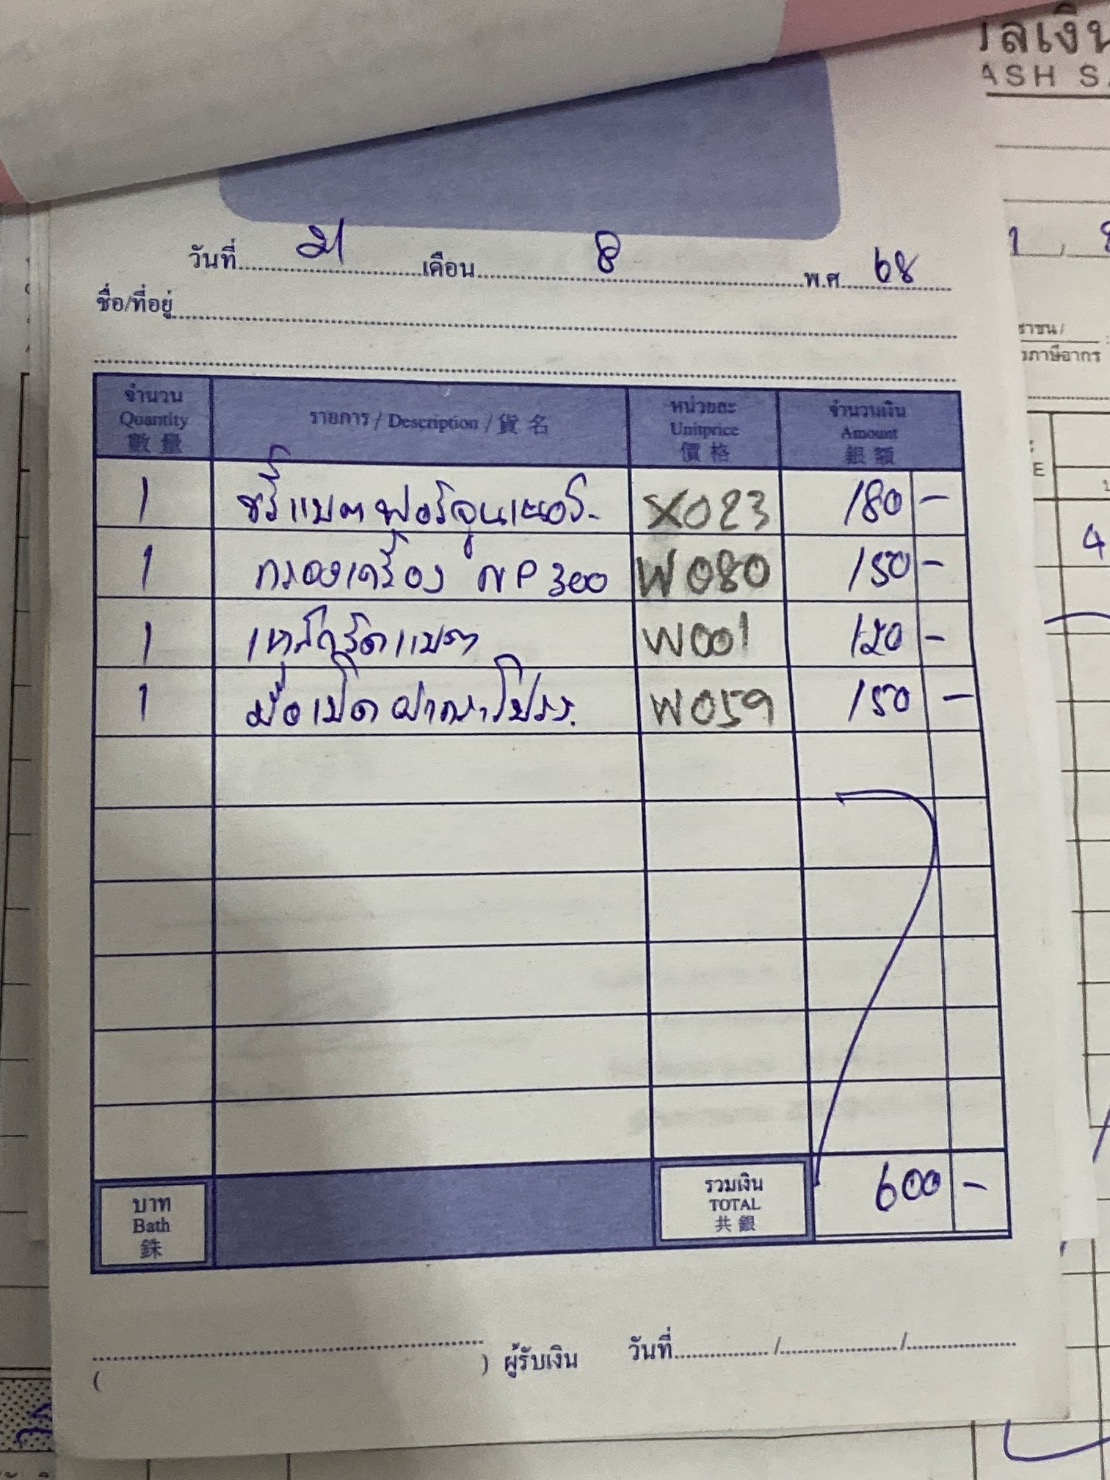 าลเงิน
ASH SA
วันที่ 21 เดือน 8 พ.ศ. 68
ชื่อ/ที่อยู่
จำนวน รายการ / Description / 貨名 หน่วยละ จำนวนเงิน
Quantity Unitprice Amount
數量 價格 銀額
1 ขรี้แบตฟอร์จูนเนอร์ X023 180 -
1 กรองเครื่อง NP 300 W080 150 -
1 เหล็กรัดแบต W001 120 -
1 มือเปิดฝากระโปรง W059 150 -
บาท รวมเงิน 600 -
Bath TOTAL
銖 共銀
( ) ผู้รับเงิน วันที่ / /